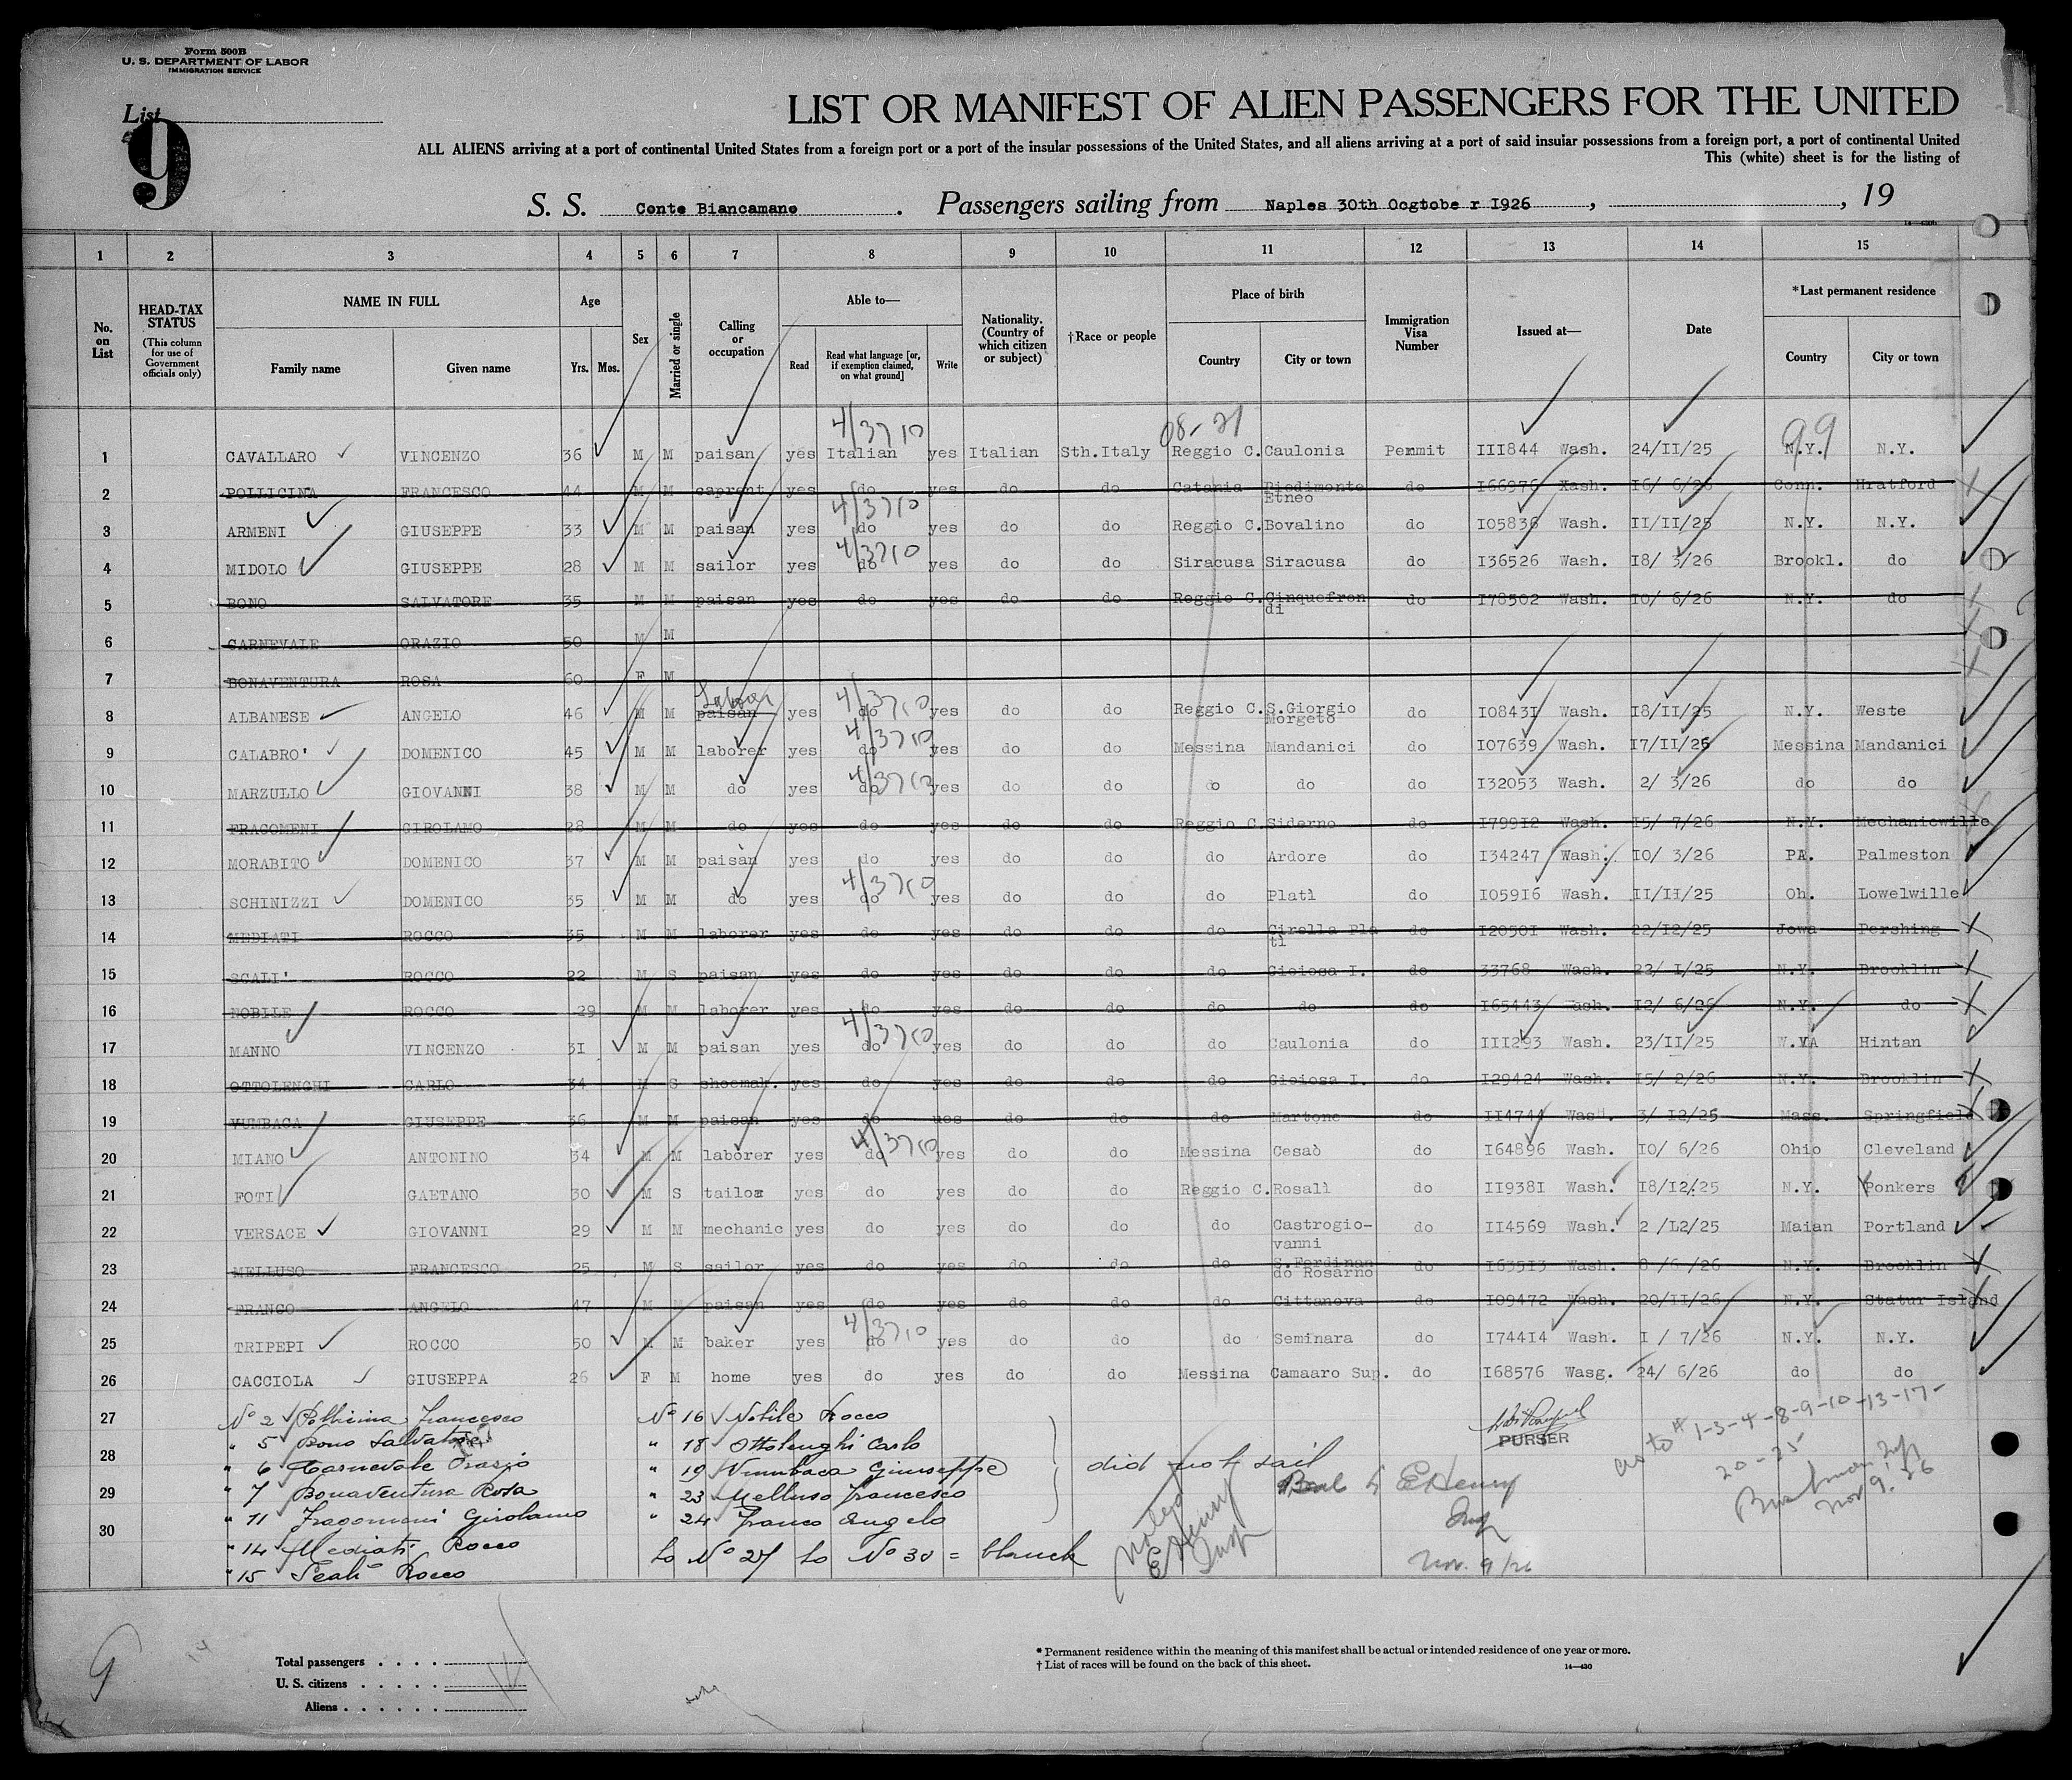 Form 500B
U. S. DEPARTMENT OF LABOR
IMMIGRATION SERVICE
List
9
LIST OR MANIFEST OF ALIEN PASSENGERS FOR THE UNITED
ALL ALIENS arriving at a port of continental United States from a foreign port or a port of the insular possessions of the United States, and all aliens arriving at a port of said insular possessions from a foreign port, a port of continental United
This (white) sheet is for the listing of
S. S. Conte Biancamano . Passengers sailing from Naples 30th Ocgtobe r I926 , , 19
14—430b
1 2 3 4 5 6 7 8 9 10 11 12 13 14 15
No. on List
HEAD-TAX STATUS (This column for use of Government officials only)
NAME IN FULL
Family name Given name
Age
Yrs. Mos.
Sex
Married or single
Calling or occupation
Able to—
Read Read what language [or, if exemption claimed, on what ground] Write
Nationality. (Country of which citizen or subject)
†Race or people
Place of birth
Country City or town
Immigration Visa Number
Issued at—
Date
*Last permanent residence
Country City or town
4/3710 08-21 99
1 CAVALLARO VINCENZO 36 M M paisan yes Italian yes Italian Sth.Italy Reggio C. Caulonia Permit III844 Wash. 24/II/25 N.Y. N.Y.
2 POLLICINA FRANCESCO 44 M M caprent yes do yes do do Catania Piedimonte Etneo do I66976 Xash. I6/ 6/26 Conn. Hratford
4/3710
3 ARMENI GIUSEPPE 33 M M paisan yes do yes do do Reggio C. Bovalino do I05836 Wash. II/II/25 N.Y. N.Y.
4/3710
4 MIDOLO GIUSEPPE 28 M M sailor yes do yes do do Siracusa Siracusa do I36526 Wash. I8/ 3/26 Brookl. do
5 BONO SALVATORE 35 M M paisan yes do yes do do Reggio C. Cinquefron di do I78502 Wash. I0/ 6/26 N.Y. do
6 CARNEVALE ORAZIO 50 M M
7 BONAVENTURA ROSA 60 F M
Labor 4/3710
8 ALBANESE ANGELO 46 M M paisan yes do yes do do Reggio C. S.Giorgio Morgeto do I0843I Wash. I8/II/25 N.Y. Weste
4/3710
9 CALABRO' DOMENICO 45 M M laborer yes do yes do do Messina Mandanici do I07639 Wash. I7/II/26 Messina Mandanici
4/3710
10 MARZULLO GIOVANNI 38 M M do yes do yes do do do do do I32053 Wash. 2/ 3/26 do do
11 FRAGOMENI GIROLAMO 28 M M do yes do yes do do Reggio C. Siderno do I799I2 Wash. I5/ 7/26 N.Y. Mechanicwille
12 MORABITO DOMENICO 37 M M paisan yes do yes do do do Ardore do I34247 Wash. I0/ 3/26 PA. Palmeston
4/3710
13 SCHINIZZI DOMENICO 35 M M do yes do yes do do do Platì do I059I6 Wash. II/II/25 Oh. Lowelwille
14 MEDIATI ROCCO 35 M M laborer yes do yes do do do Cirella Pla tì do I2050I Wash. 22/I2/25 Jowa Pershing
15 SCALI' ROCCO 22 M S paisan yes do yes do do do Gioiosa I. do 33768 Wash. 22/ I/25 N.Y. Brooklin
16 NOBILE ROCCO 29 M M laborer yes do yes do do do do do I65443 Wash. I2/ 6/26 N.Y. do
4/3710
17 MANNO VINCENZO 3I M M paisan yes do yes do do do Caulonia do III293 Wash. 23/II/25 W.VA Hintan
18 OTTOLENGHI CARLO 34 M S shoemak. yes do yes do do do Gioiosa I. do I29424 Wash. I5/ 2/26 N.Y. Brooklin
19 VUMBACA GIUSEPPE 36 M M paisan yes do ues do do do Martone do II4744 Wash. 3/ I2/25 Mass. Springfield
4/3710
20 MIANO ANTONINO 34 M M laborer yes do yes do do Messina Cesaò do I64896 Wash. I0/ 6/26 Ohio Cleveland
21 FOTI GAETANO 30 M S tailor yes do yes do do Reggio C. Rosalì do II938I Wash. I8/I2/25 N.Y. Yonkers
22 VERSACE GIOVANNI 29 M M mechanic yes do yes do do do Castrogio- vanni do II4569 Wash. 2 /L2/25 Maian Portland
23 MELLUSO FRANCESCO 25 M S sailor yes do yes do do do S.Ferdinan do Rosarno do I635I3 Wash. 8 /6 /26 N.Y. Brooklin
24 FRANCO ANGELO 47 M M paisan yes do yes do do do Cittanova do I09472 Wash. 20/II/26 N.Y. Statur Island
4/3710
25 TRIPEPI ROCCO 50 M M baker yes do yes do do do Seminara do I744I4 Wash. I / 7/26 N.Y. N.Y.
26 CACCIOLA GIUSEPPA 26 F M home yes do yes do do Messina Camaaro Sup. do I68576 Wasg. 24/ 6/26 do do
27
28
29
30
No 2 Pollicina Francesco
" 5 Bono Salvatore
" 6 Carnevale Orazio
" 7 Bonaventura Rosa
" 11 Fragomeni Girolamo
" 14 Mediati Rocco
" 15 Scali Rocco
No 16 Nobile Rocco
" 18 Ottolenghi Carlo
" 19 Vumbaca Giuseppe
" 23 Melluso Francesco
" 24 Franco Angelo
did not sail
to No 27 to No 30 = blanck
Noted
E Henry
Insp
PURSER
E Henry
Insp
Nov. 9/26
as to # 1-3-4-8-9-10-13-17-
20-25-
Nov 9. 26
9
14
Total passengers . . . .
U. S. citizens . . . . .
Aliens . . . . . .
* Permanent residence within the meaning of this manifest shall be actual or intended residence of one year or more.
† List of races will be found on the back of this sheet.
14—430